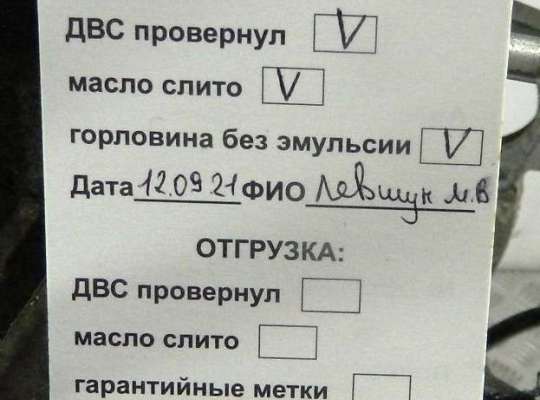 ДВС провернул V
масло слито V
горловина без эмульсии V
Дата 12.09.21 ФИО Левшук М.В
ОТГРУЗКА:
ДВС провернул
масло слито
гарантийные метки